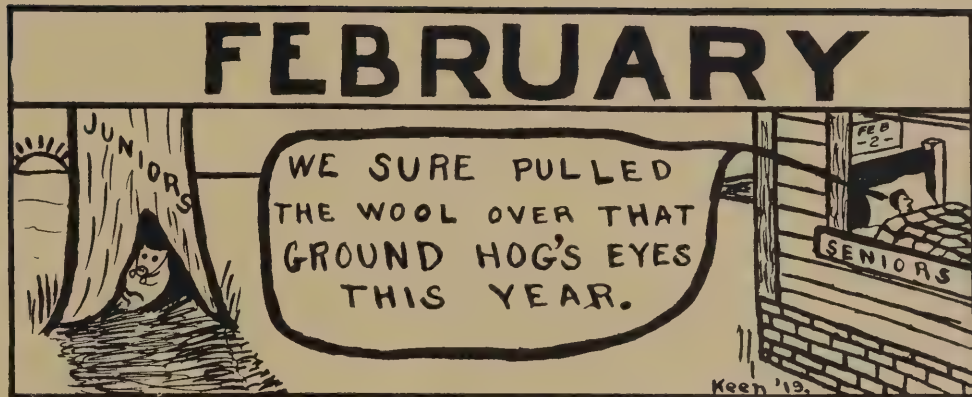 FEBRUARY
JUNIORS
WE SURE PULLED
THE WOOL OVER THAT
GROUND HOG'S EYES
THIS YEAR.
FEB
-2-
SENIORS
Keen '19.